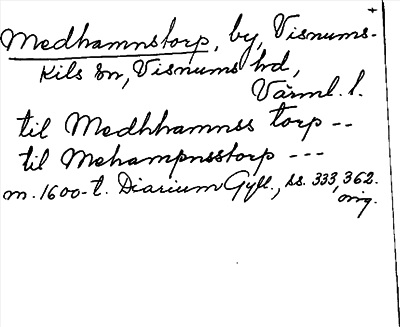 Medhamnstorp, by, Visnums-
Kils sn, Visnums hd,
Värml. l.
til Medhhamnss torp --
til Mehampnsstorp ---
m. 1600-t. Diarium Gyll., ss. 333, 362.
orig.